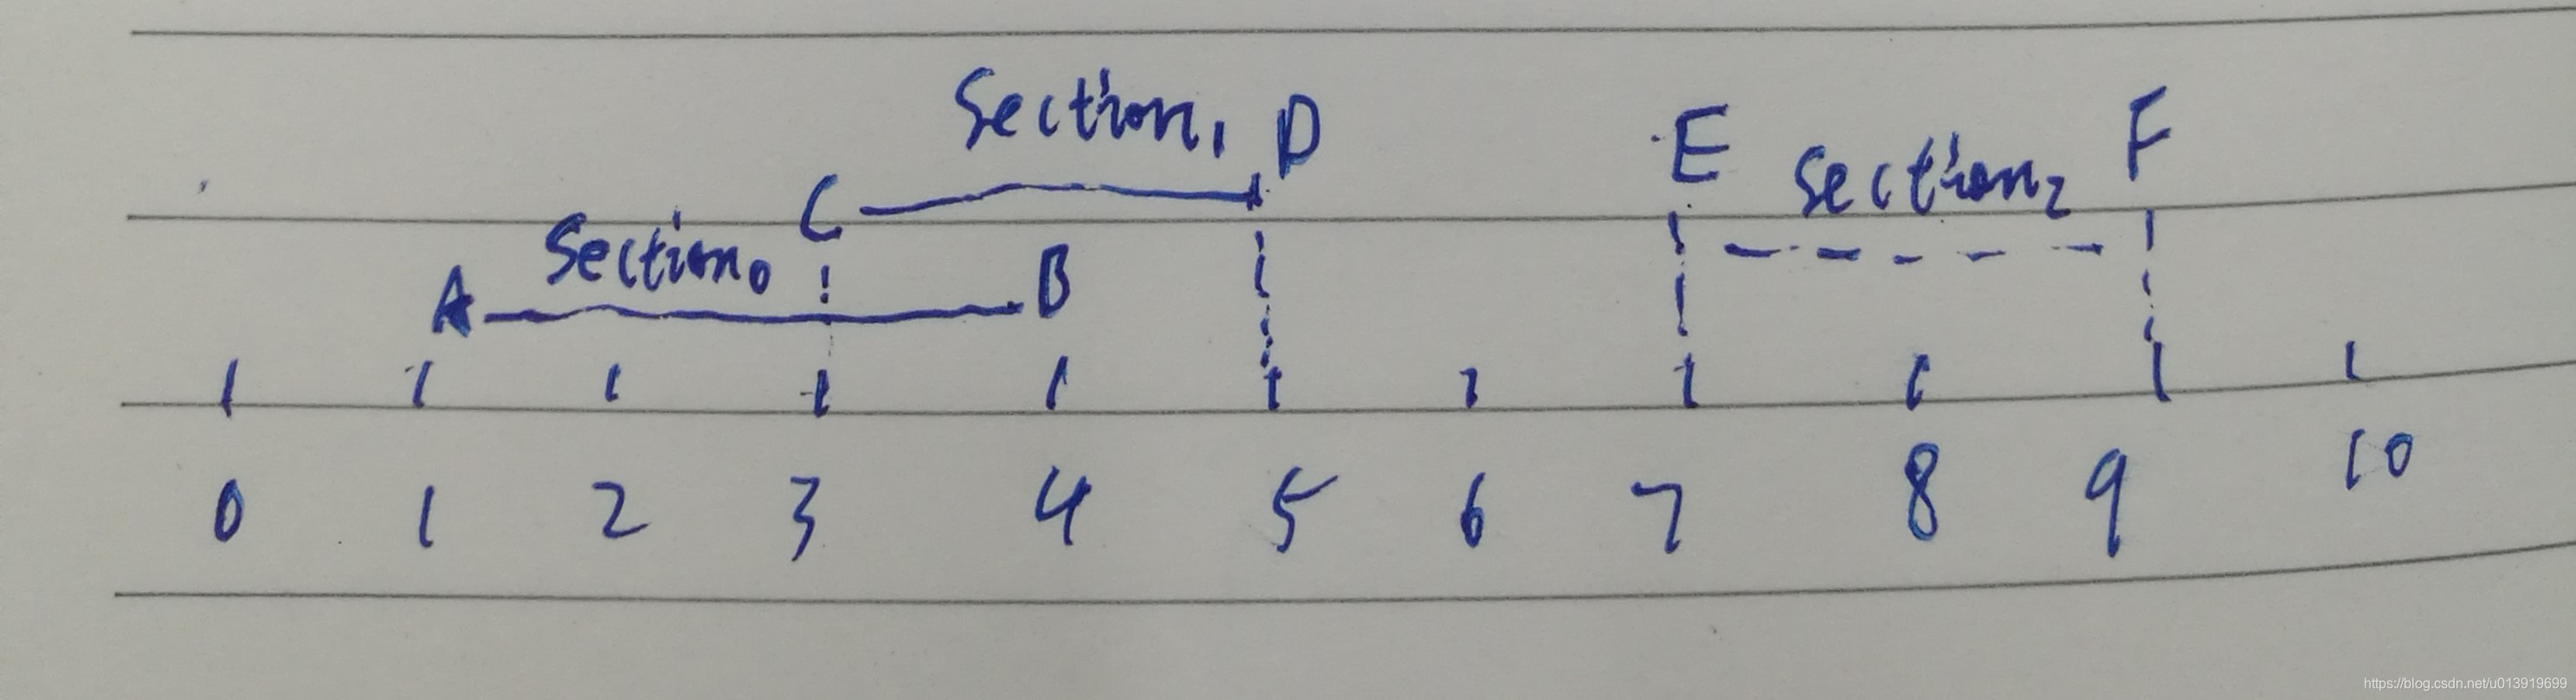 Section1 D
E Section2 F
C
A Section0 B
0 1 2 3 4 5 6 7 8 9 10
https://blog.csdn.net/u013919699